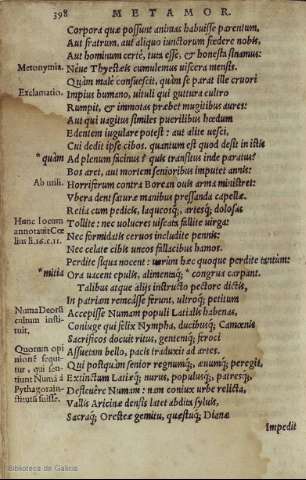 398 METAMOR.
Corpora quæ possunt animas habuisse parentum,
Aut fratrum, aut aliquo iunctorum fœdere nobis,
Aut hominum certè, tuta esse, & honesta sinamus:
Metonymia. Néue Thyestæis cumulemus viscera mensis.
Quàm malè consuescit, quàm se parat ille cruori
Exclamatio. Impius humano, vituli qui guttura cultro
Rumpit, & immotas præbet mugitibus aures:
Aut qui vagitus similes puerilibus hœdum
Edentem iugulare potest: aut alite vesci,
Cui dedit ipse cibos. quantum est quod desit in istis
*quàm Ad plenum facinus? quis transitus inde paratus?
Bos aret, aut mortem senioribus imputet annis:
Ab utili. Horriferum contra Borean ouis arma ministret:
Vbera dent saturæ manibus pressanda capellæ.
Retia cum pedicis, laqueosq́;, artesq́; dolosas
Hunc locum Tollite: nec volucres viscata fallite virga:
annotauit Cœ Nec formidatis ceruos includite pennis:
lius l.16.c.11. Nec celate cibis uncos fallacibus hamos.
Perdite siqua nocent: verùm hæc quoque perdite tantùm:
*mitia Ora vacent epulis, alimentaq́; * congrua carpant.
Talibus atque alijs instructo pectore dictis,
In patriam remeasse ferunt, ultroq́; petitum
Numa Deorũ Accepisse Numam populi Latialis habenas,
cultum insti- Coniuge qui felix Nympha, ducibusq́; Camœnis
tuit. Sacrificos docuit ritus, gentemq́; feroci
Quorum opi Assuetam bello, pacis traduxit ad artes.
nionẽ sequi- Qui postquàm senior regnumq́;, æuumq́; peregit,
tur, qui sen- Extinctum Latiæq́; nurus, populusq́;, patresq́;,
tiunt Numã à Defleuêre Numam: nam coniux urbe relicta,
Pythagora in- Vallis Aricinæ densis latet abdita syluis,
stitutũ fuisse. Sacraq́; Oresteæ gemitu, questuq́; Dianæ
Impedit
Biblioteca de Galicia